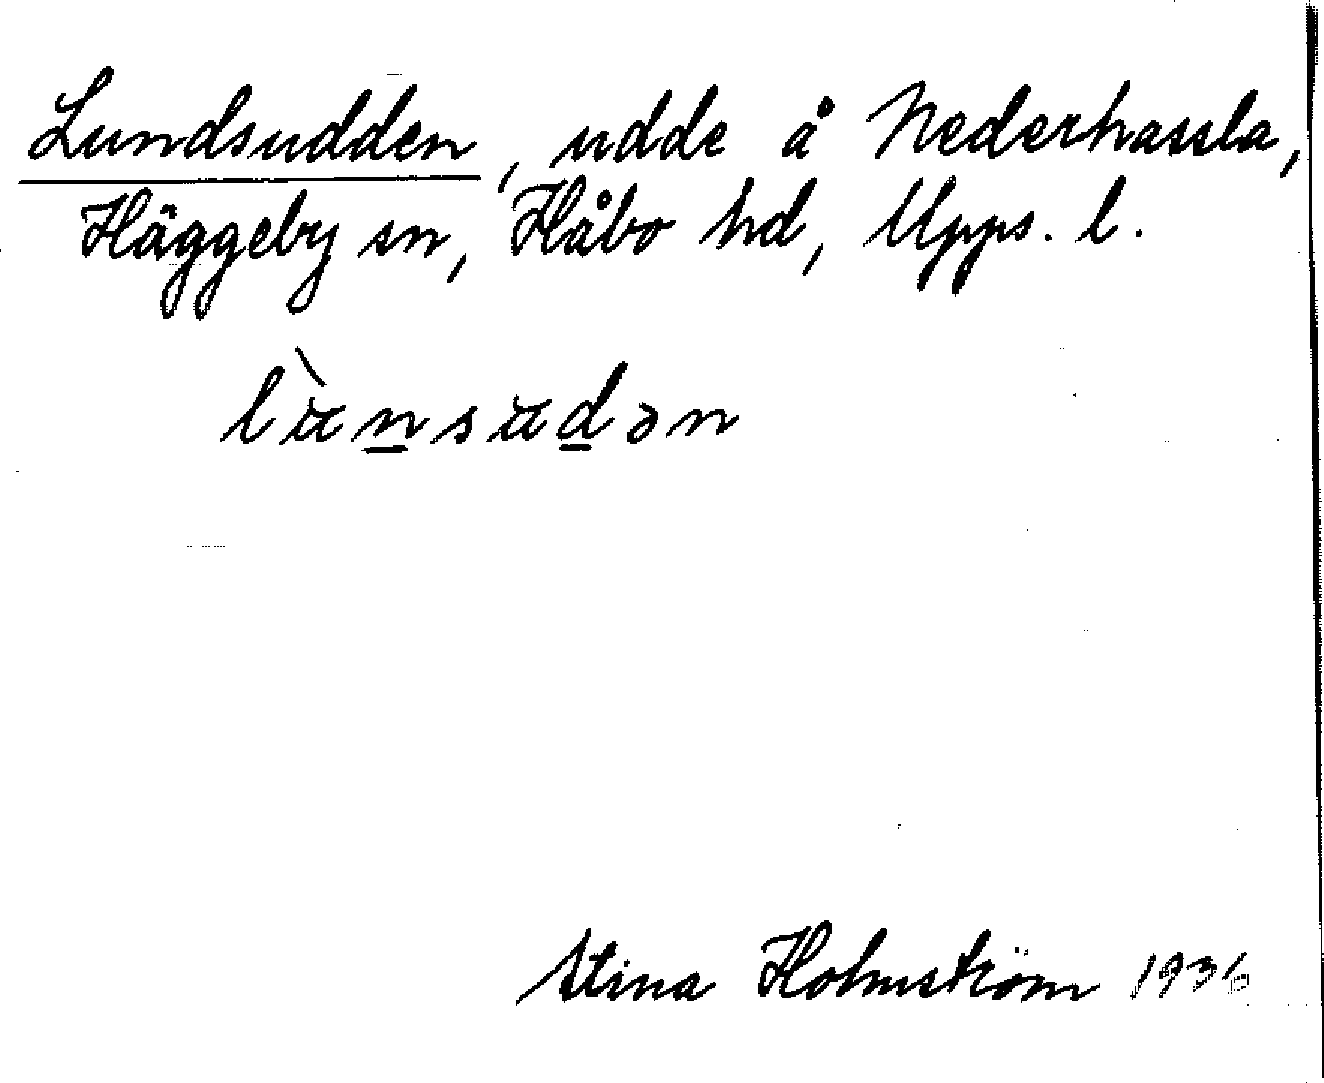 Lundsudden, udde å Nederhassla,
Häggeby sn, Håbo hd, Upps. l.
Stina Holmström 1936